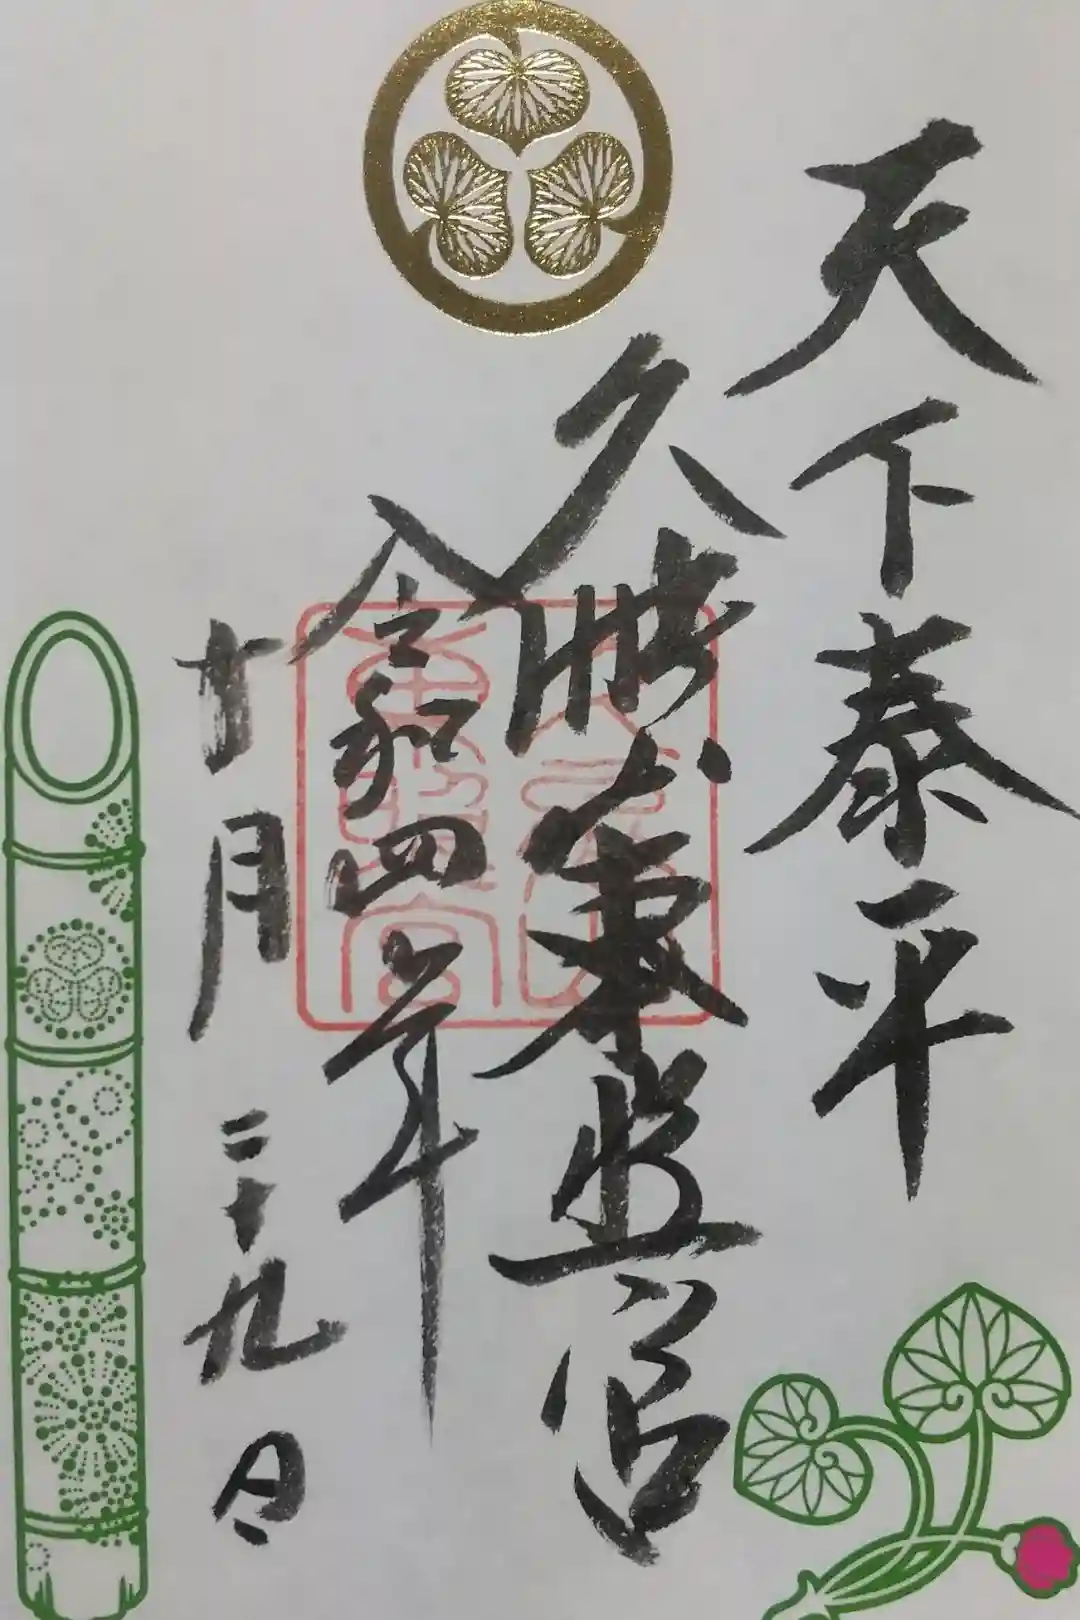 天下泰平
久能山東照宮
令和四年
十月二十九日